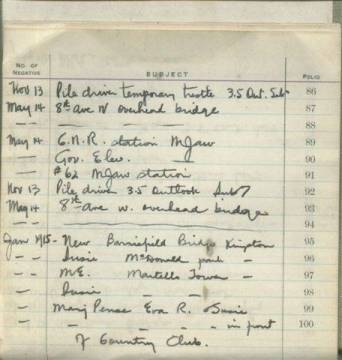 NO. OF NEGATIVE SUBJECT FOLIO
Nov 13 Pile driver temporary trestle 3.5 Out. Sub. 86
May 14 8th ave W overhead bridge 87
— — — 88
May 14 C.N.R. station MJaw 89
— — Gov. Elev. — 90
— — #62 MJaw station 91
Nov 13 Pile driver 3.5 Outlook Sub 92
May 14 8th Ave w. overhead bridge 93
— — — 94
Jan 1915 - New Barriefield Bridge Kingston 95
— — Susie McDonald park — 96
— — M.E. Martello Tower — 97
— — Susie — — 98
— — Marj Eva R. Susie 99
— — — — — in front 100
of Country Club.